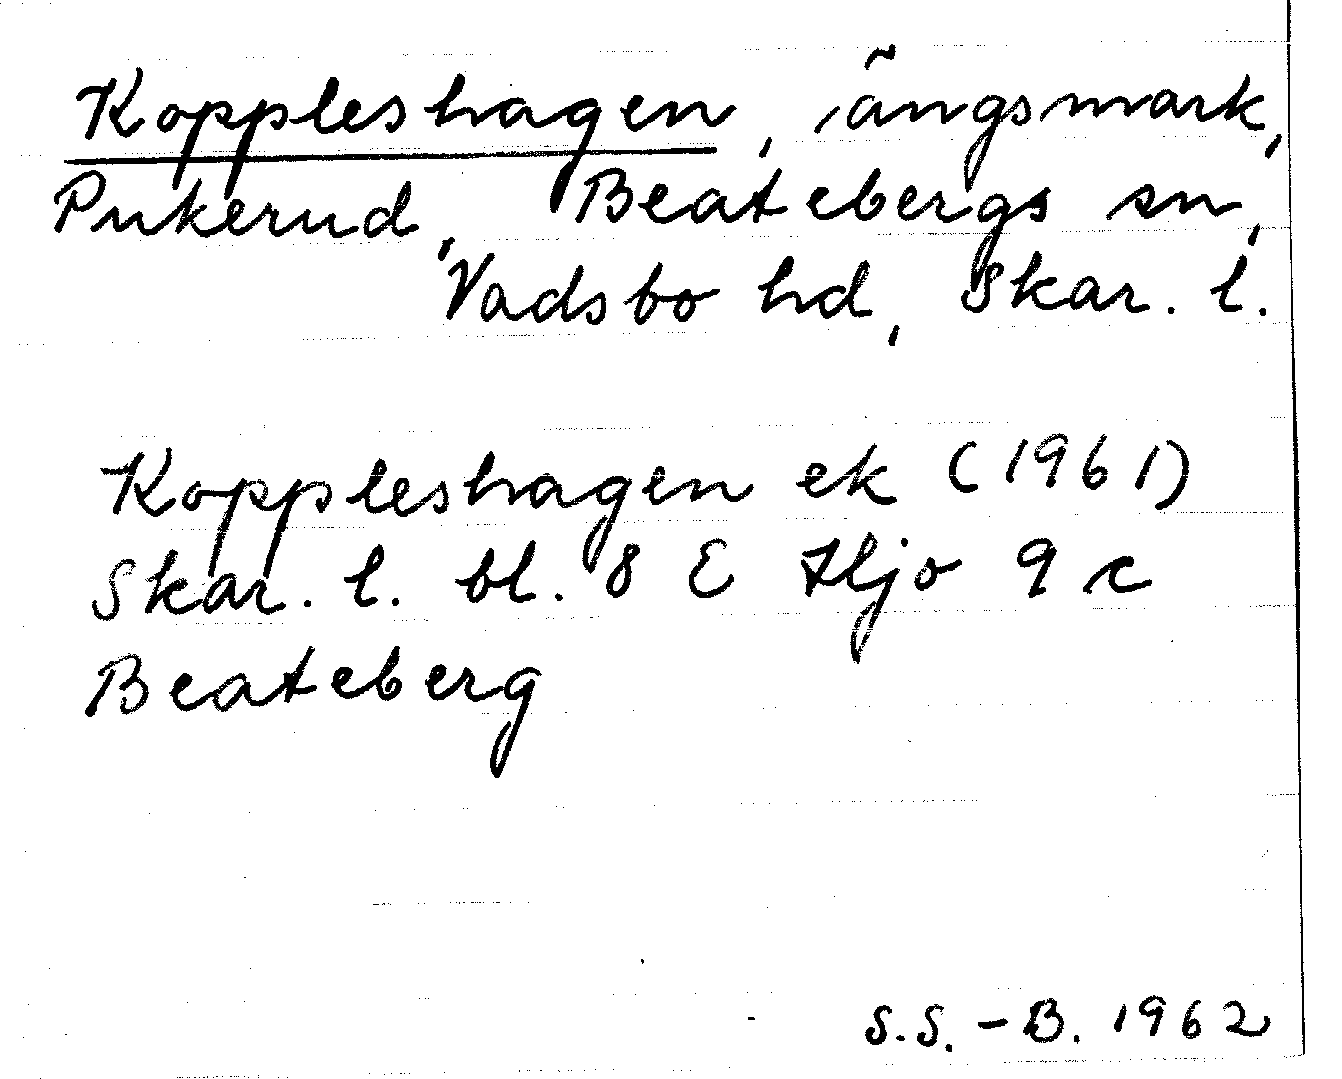 Koppleshagen, ängsmark,
Pukerud, Beatebergs sn,
Vadsbo hd, Skar. l.
Koppleshagen ek (1961)
Skar. l. bl. 8 E Hjo 9 c
Beateberg
S.S.-B. 1962